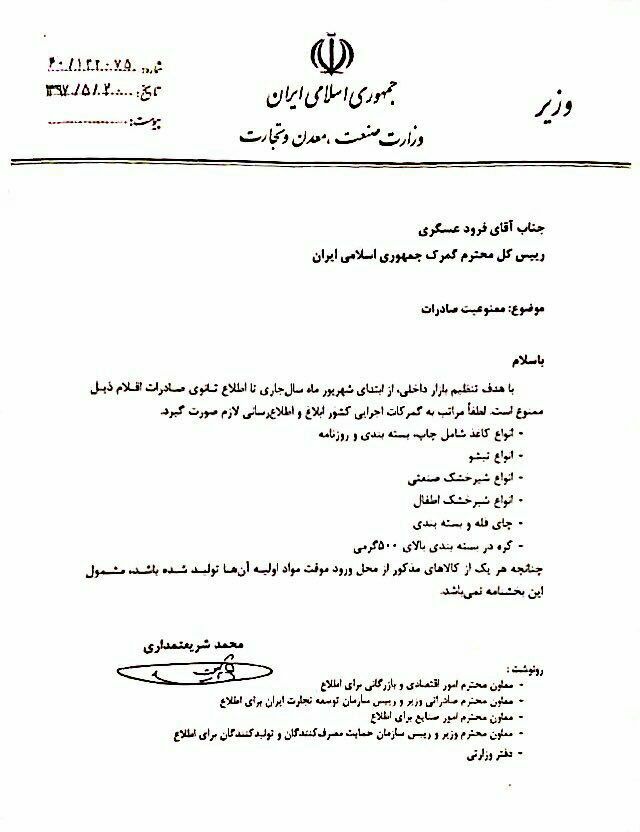 جمهوری اسلامی ایران
وزارت صنعت، معدن و تجارت
وزیر
شماره: ۶۰/۱۲۲۰۷۵
تاریخ: ۱۳۹۷/۵/۲۰
پیوست:
جناب آقای فرود عسگری
رییس کل محترم گمرک جمهوری اسلامی ایران
موضوع: ممنوعیت صادرات
باسلام
با هدف تنظیم بازار داخلی، از ابتدای شهریور ماه سال‌جاری تا اطلاع ثانوی صادرات اقلام ذیل
ممنوع است. لطفاً مراتب به گمرکات اجرایی کشور ابلاغ و اطلاع‌رسانی لازم صورت گیرد.
- انواع کاغذ شامل چاپ، بسته بندی و روزنامه
- انواع تیشو
- انواع شیرخشک صنعتی
- انواع شیرخشک اطفال
- چای فله و بسته بندی
- کره در بسته بندی بالای ۵۰۰گرمی
چنانچه هر یک از کالاهای مذکور از محل ورود موقت مواد اولیه آن‌ها تولید شده باشد، مشمول
این بخشنامه نمی‌باشد.
محمد شریعتمداری
رونوشت:
- معاون محترم امور اقتصادی و بازرگانی برای اطلاع
- معاون محترم صادراتی وزیر و رییس سازمان توسعه تجارت ایران برای اطلاع
- معاون محترم امور صنایع برای اطلاع
- معاون محترم وزیر و رییس سازمان حمایت مصرف‌کنندگان و تولیدکنندگان برای اطلاع
- دفتر وزارتی